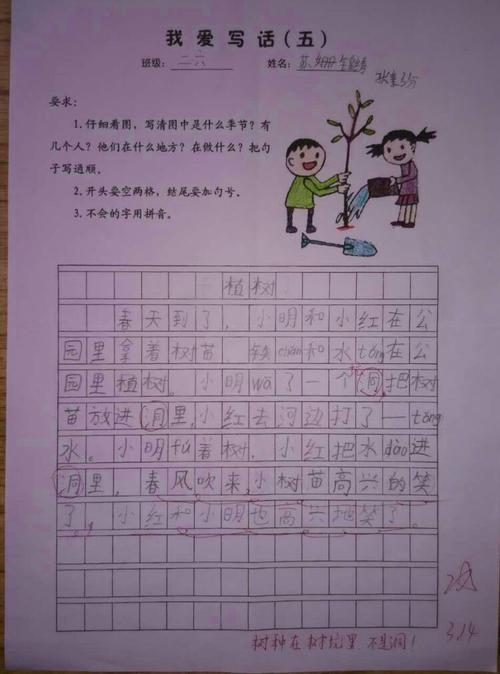 我爱写话(五)
班级: 二六 姓名: 苏姗
要求:
1. 仔细看图,写清图中是什么季节?有
几个人?他们在什么地方?在做什么?把句
子写通顺。
2. 开头要空两格,结尾要加句号。
3. 不会的字用拼音。
植树
春天到了,小明和小红在公
园里拿着树苗、铁chǎn和水tǒng在公
园里植树。小明wā了一个洞,把树
苗放进洞里,小红去河边打了一tǒng
水。小明fú着树,小红把水dào进
洞里,春风吹来,小树苗高兴的笑
了,小红和小明也高兴地笑了。
3.14
树种在树坑里,不是洞!